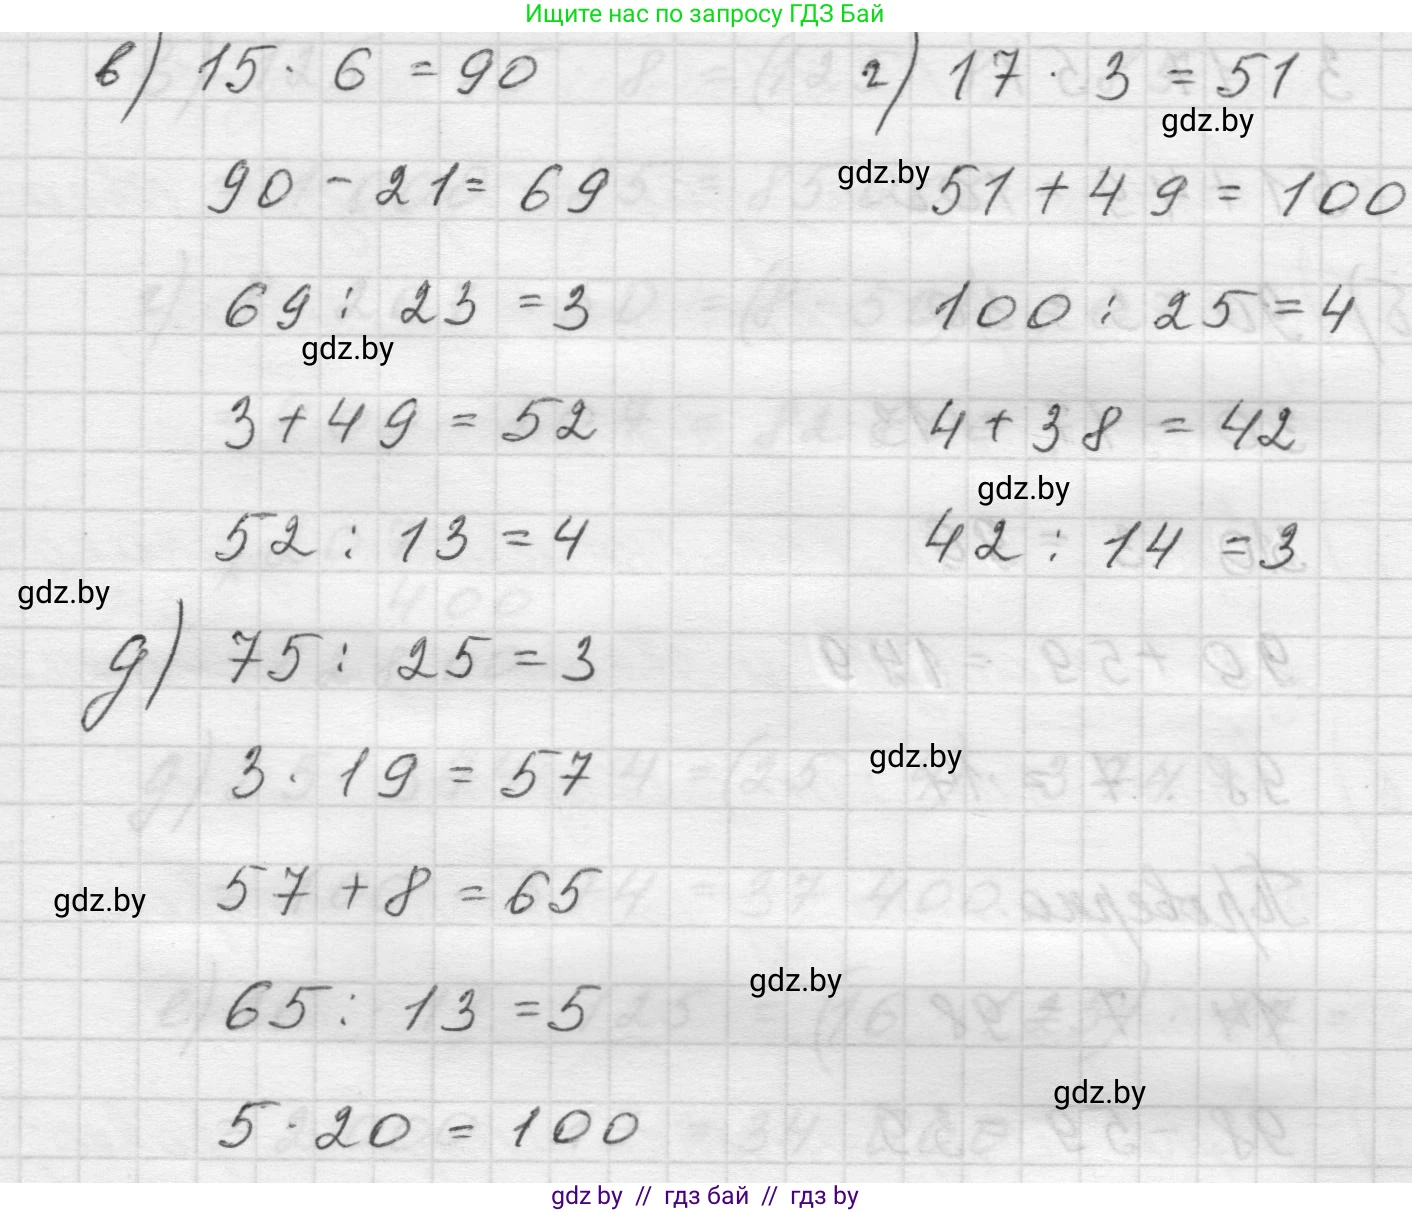 Ищите нас по запросу ГДЗ Бай
в) 15 · 6 = 90
90 - 21 = 69
69 : 23 = 3
3 + 49 = 52
52 : 13 = 4
г) 17 · 3 = 51
51 + 49 = 100
100 : 25 = 4
4 + 38 = 42
42 : 14 = 3
д) 75 : 25 = 3
3 · 19 = 57
57 + 8 = 65
65 : 13 = 5
5 · 20 = 100
gdz.by
gdz.by
gdz.by
gdz.by
gdz.by
gdz.by
gdz.by
gdz.by
gdz.by
gdz by // гдз бай // гдз by